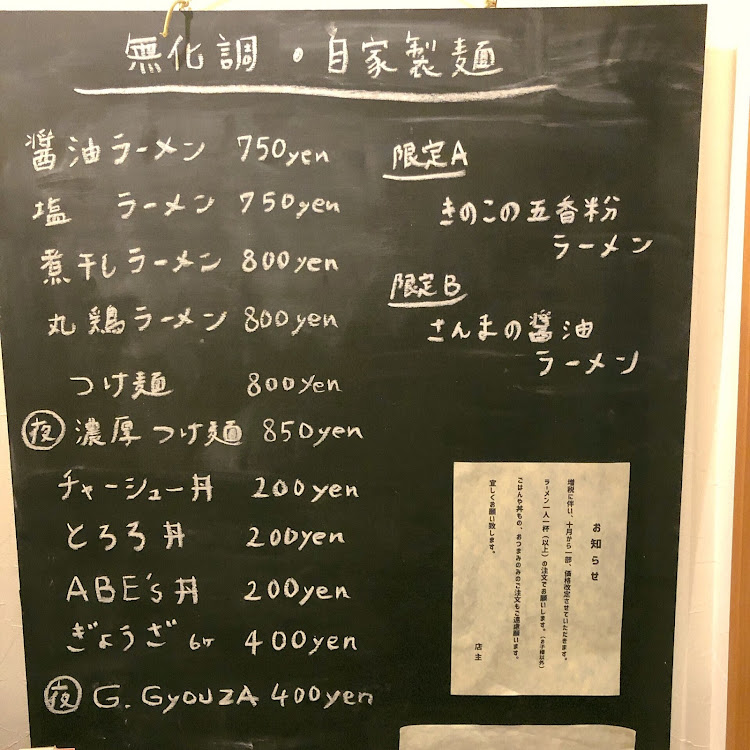 無化調・自家製麺
醤油ラーメン 750yen
塩 ラーメン 750yen
煮干しラーメン 800yen
丸鶏ラーメン 800yen
つけ麺 800yen
夜 濃厚つけ麺 850yen
チャーシュー丼 200yen
とろろ丼 200yen
ABE's丼 200yen
ぎょうざ 6ケ 400yen
夜 G. GYOUZA 400yen
限定A
きのこの五香粉
ラーメン
限定B
さんまの醤油
ラーメン
お知らせ
増税に伴い、十月から一部、価格改定させていただきます。
ラーメン一人一杯(以上)の注文でお願いします。(お子様以外)
ごはんや丼もの、おつまみのみのご注文もご遠慮願います。
宜しくお願い致します。
店主